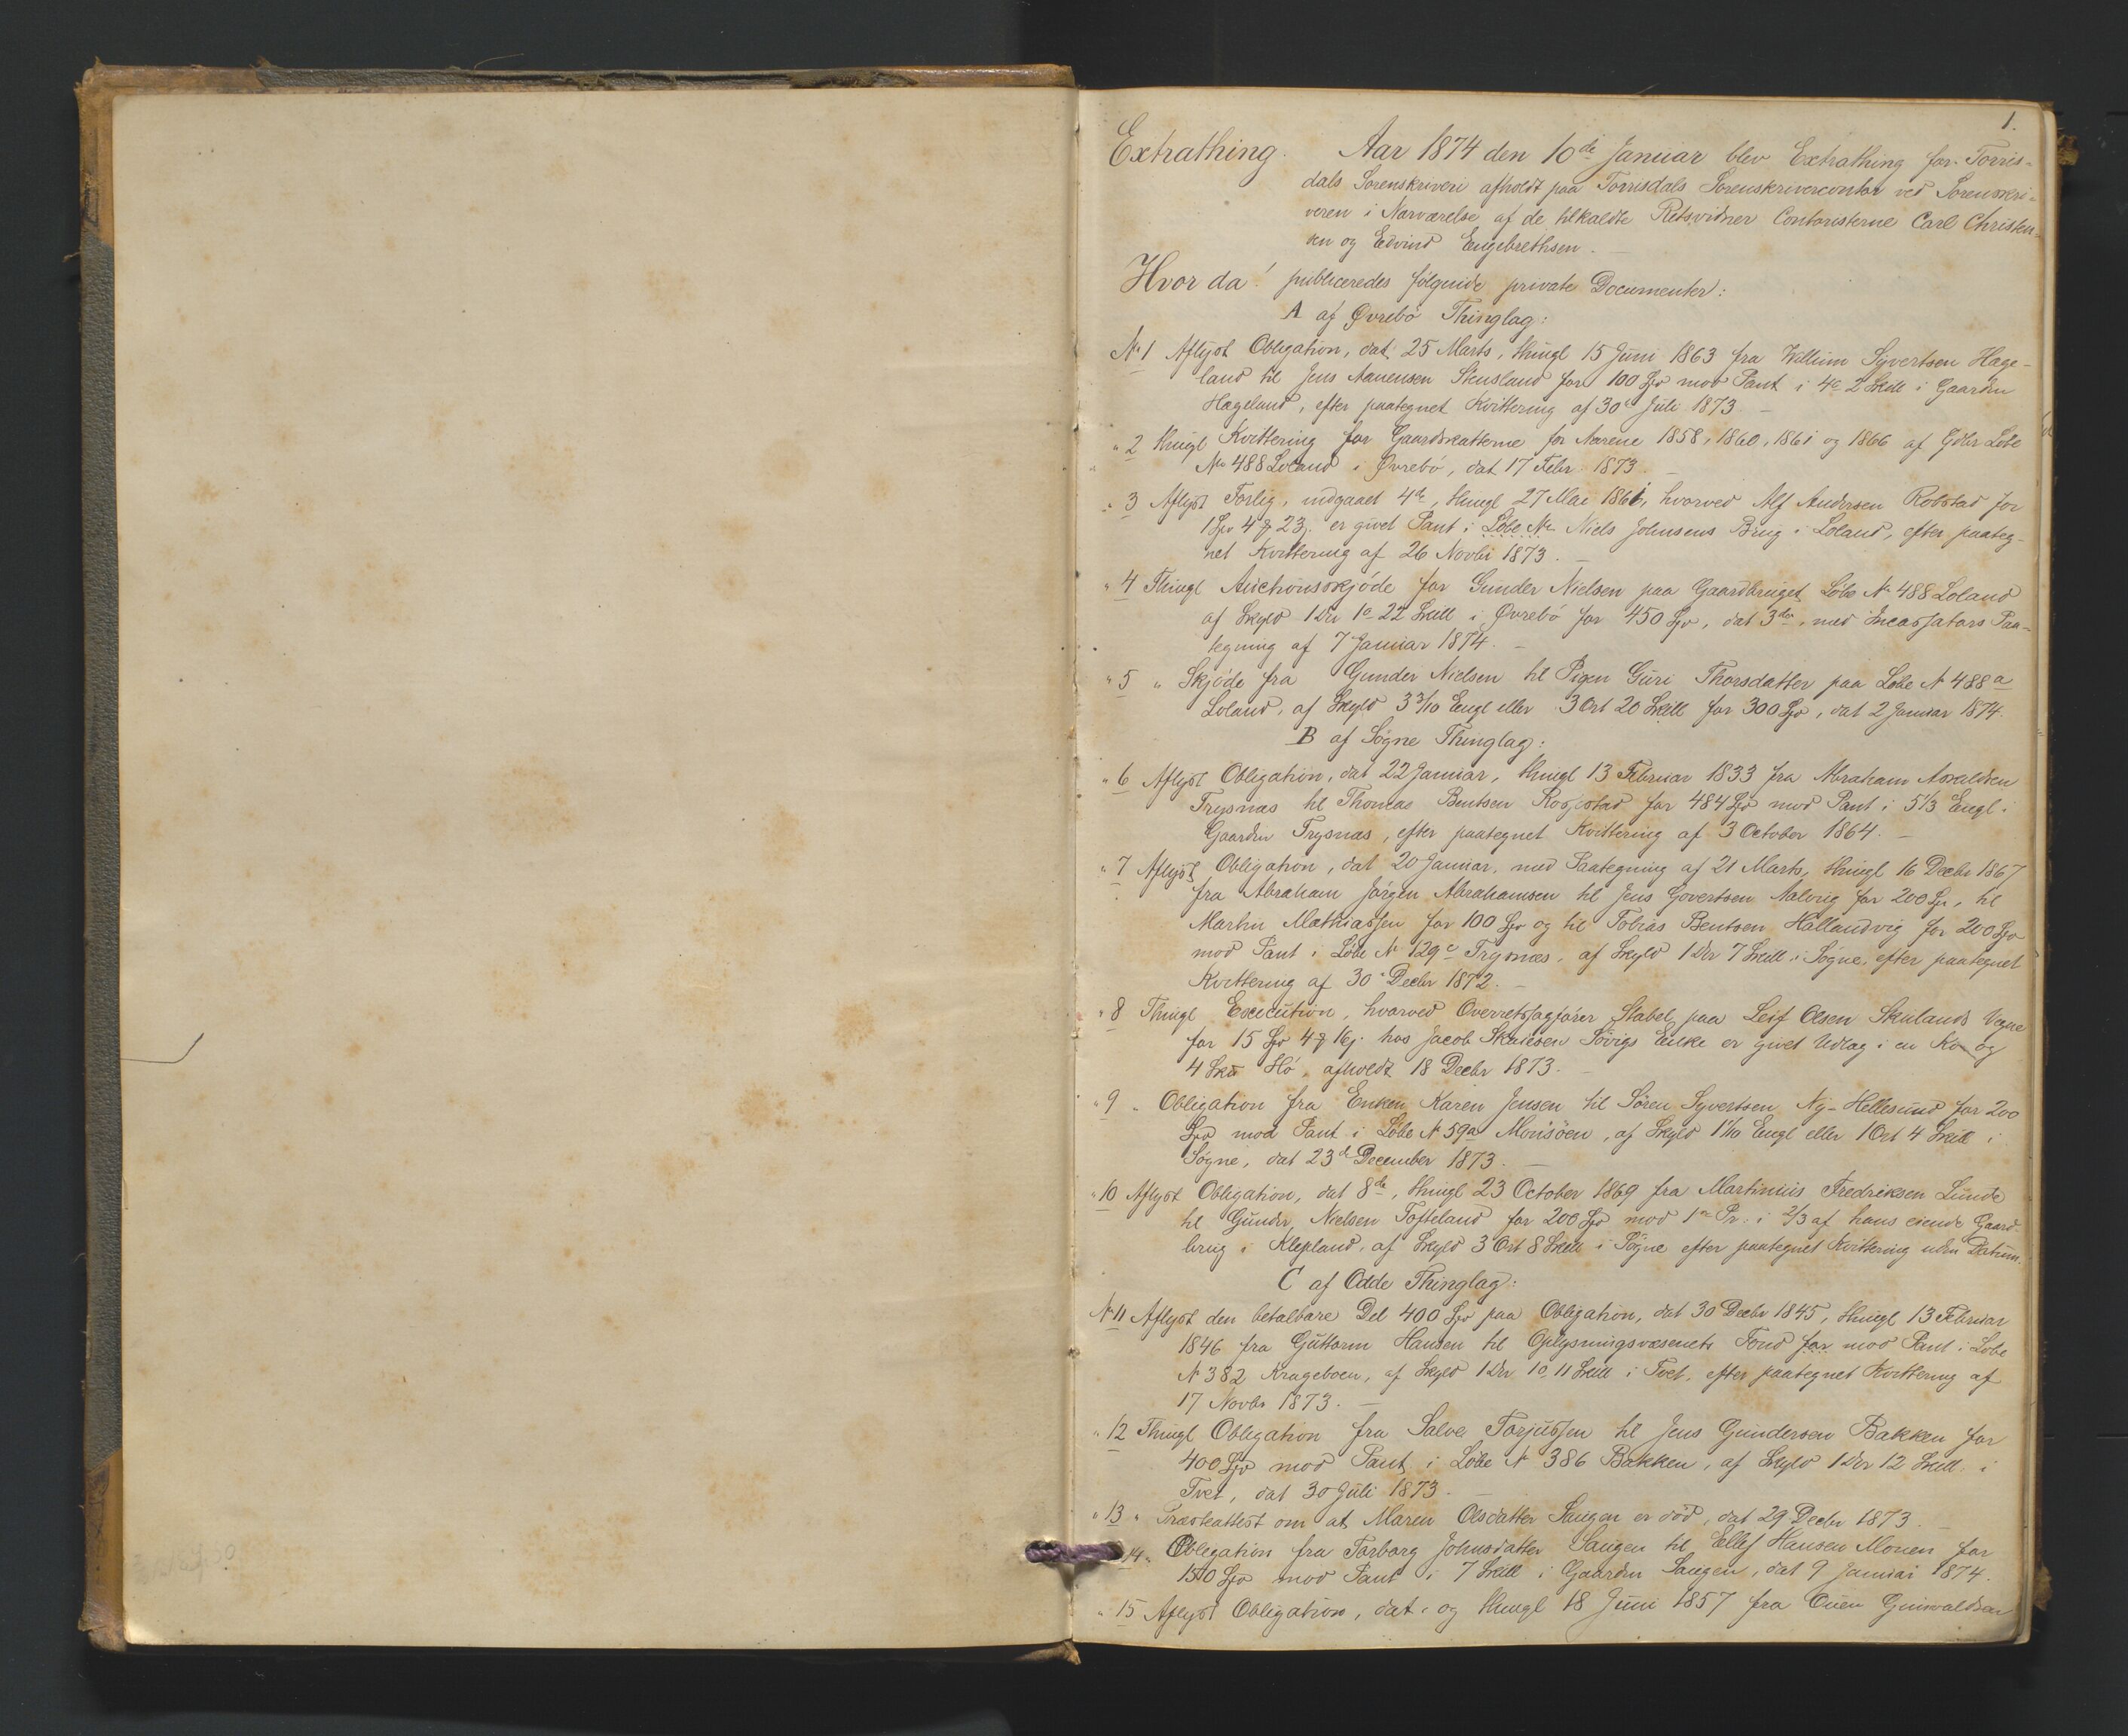 1.
Extrathing. Aar 1874 den 10de Januar blev Extrathing for Torris-
dals Sorenskriveri afholdt paa Torrisdals Sorenskrivercontor ved Sorenskri-
veren i Nærværelse af de tilkaldte Retsvidner Contoristerne Carl Christen-
sen og Edvind Engebrethsen. —
Hvor da! publiceredes følgende private Documenter:
A af Øvrebø Thinglag:
No 1 Aflyst Obligation, dat. 25 Marts, thingl 15 Juni 1863 fra Villum Syvertsen Hage-
land til Jens Aanensen Stensland for 100 Spd mod Pant i 4o 2 Skill i Gaarden
Hageland, efter paategnet Kvittering af 30 Juli 1873. —
" 2 thingl Kvittering for Gaardskatterne for Aarene 1858, 1860, 1861 og 1866 af Gdbr Løbe
No 488 Loland i Øvrebø, dat 17 Febr. 1873. —
" 3 Aflyst Forlig, indgaaet 4de, thingl 27 Mai 1861, hvorved Alf Andersen Robstad for
1 Spd 4 # 23 s. er givet Pant i Løbe No Niels Johnsens Brug i Loland, efter paateg-
net Kvittering af 26 Novbr 1873. —
" 4 Thingl Auctionsskjøde for Gunder Nielsen paa Gaardbruget Løbe No 488 Loland
af Skyld 1 Dlr 1o 22 Skill i Øvrebø for 450 Spd, dat 3die, med Incassators Paa-
tegning af 7 Januar 1874. —
" 5 " Skjøde fra Gunder Nielsen til Pigen Guri Thorsdatter paa Løbe No 488 a
Loland, af Skyld 3 3/10 Engl eller 3 Ort 20 Skill for 300 Spd, dat 2 Januar 1874.
B af Søgne Thinglag:
" 6 Aflyst Obligation, dat 22 Januar, thingl 13 Februar 1833 fra Abraham Aswaldsen
Trysnæs til Thomas Bentsen Rospstad for 484 Spd mod Pant i 5 1/3 Engl. i
Gaarden Trysnæs, efter paategnet Kvittering af 3 October 1864. —
" 7 Aflyst Obligation, dat 20 Januar, med Paategning af 21 Marts, thingl 16 Decbr 1867
fra Abraham Jørgen Abrahamsen til Jens Govertsen Aalvig for 200 Sp, til
Martin Mathiassen for 100 Spd og til Tobias Bentsen Hallandvig for 200 Spd
mod Pant i Løbe No 129 c Trysnæs, af Skyld 1 Dlr 7 Skill. i Søgne, efter paategnet
Kvittering af 30 Decbr 1872. —
" 8 Thingl Execution, hvorved Overretssagfører Stabel paa Leif Olsen Skulands Vegne
for 15 Spd 4 # 16 s. hos Jacob Skaiesen Søvigs Enke er givet Udlag i en Ko og
4 Sk# Hø, afholdt 18 Decbr 1873. —
" 9 " Obligation fra Enken Karen Jensen til Søren Syvertsen Ny-Hellesund for 200
Spd mod Pant i Løbe No 59 a Monsøen, af Skyld 1 1/10 Engl eller 1 Ort 4 Skill i
Søgne, dat 23de December 1873. —
" 10 Aflyst Obligation, dat 8de, thingl 23 October 1869 fra Martinius Fredriksen Lunde
til Gunder Nielsen Tofteland for 200 Spd mod 1te Pr. i 2/3 af hans eiende Gaard-
brug i Klepland, af Skyld 3 Ort 8 Skill i Søgne efter paategnet Kvittering uden Datum.
C af Odde Thinglag:
No 11 Aflyst den betalbare Del 400 Spd paa Obligation, dat 30 Decbr 1845, thingl 13 Februar
1846 fra Guttorm Hansen til Oplysningsvæsenets Fond for mod Pant i Løbe
No 382 Krageboen, af Skyld 1 Dlr 1o 11 Skill i Tvet, efter paategnet Kvittering af
17 Novbr 1873. —
" 12 Thingl Obligation fra Salve Torjussen til Jens Gundersen Bakken for
400 Spd mod Pant i Løbe No 386 Bakken, af Skyld 1 Dlr 12 Skill. i
Tvet, dat 30 Juli 1873. —
" 13 " Præsteattest om at Maren Olsdatter Saugen er død, dat 29 Decbr 1873. —
14 " Obligation fra Torborg Johnsdatter Saugen til Ellef Hansen Monen for
150 Spd mod Pant i 7 Skill i Gaarden Saugen, dat 9 Januar 1874.
" 15 Aflyst Obligation, dat. og thingl 18 Juni 1857 fra Ouen Gunvaldsen